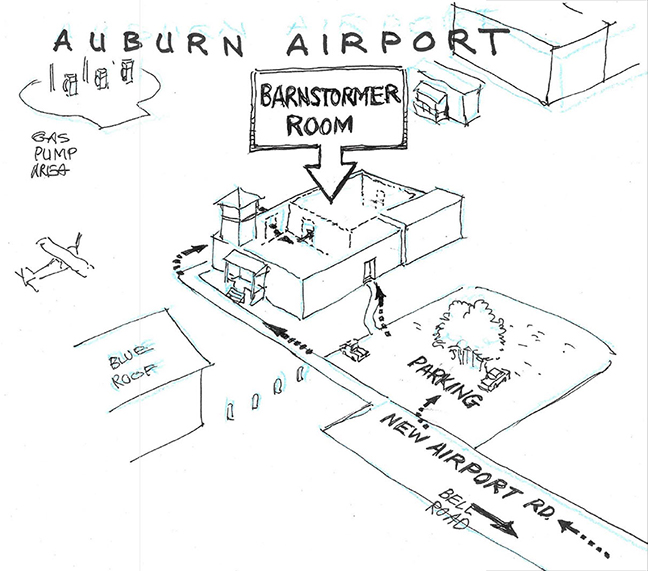 AUBURN AIRPORT
BARNSTORMER
ROOM
GAS
PUMP
AREA
BLUE
ROOF
PARKING
NEW AIRPORT RD.
BELL
ROAD